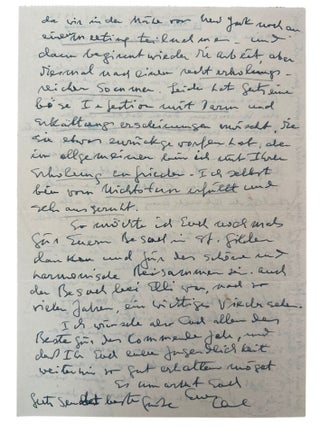 da wir in der Nähe von New York noch an
einem Meeting teilnehmen - und
dann beginnt wieder die Arbeit, aber
diesmal nach einem recht erholungs-
reichen Sommer. Leider hat Gert eine
böse Infektion mit Darm und
Erkältungserscheinungen erwischt, die
sie etwas zurückgeworfen hat, aber
im allgemeinen bin ich mit Ihrer
Erholung zufrieden. Ich selbst
bin vom Nichtstun erfüllt und
sehr ausgeruht.
So möchte ich Euch nochmals
für Euern Besuch in St. Gilgen
danken und für das schöne und
harmonische Beisammensein. Auch
der Besuch bei Elli war, nach so
vielen Jahren, ein wichtiges Wiedersehen.
Ich wünsche also Euch allen das
Beste für das kommende Jahr, und
daß Ihr Euch eure Jugendlichkeit
weiterhin so gut erhalten möget
Es umarmt Euch
sendet beste Grüße Euer